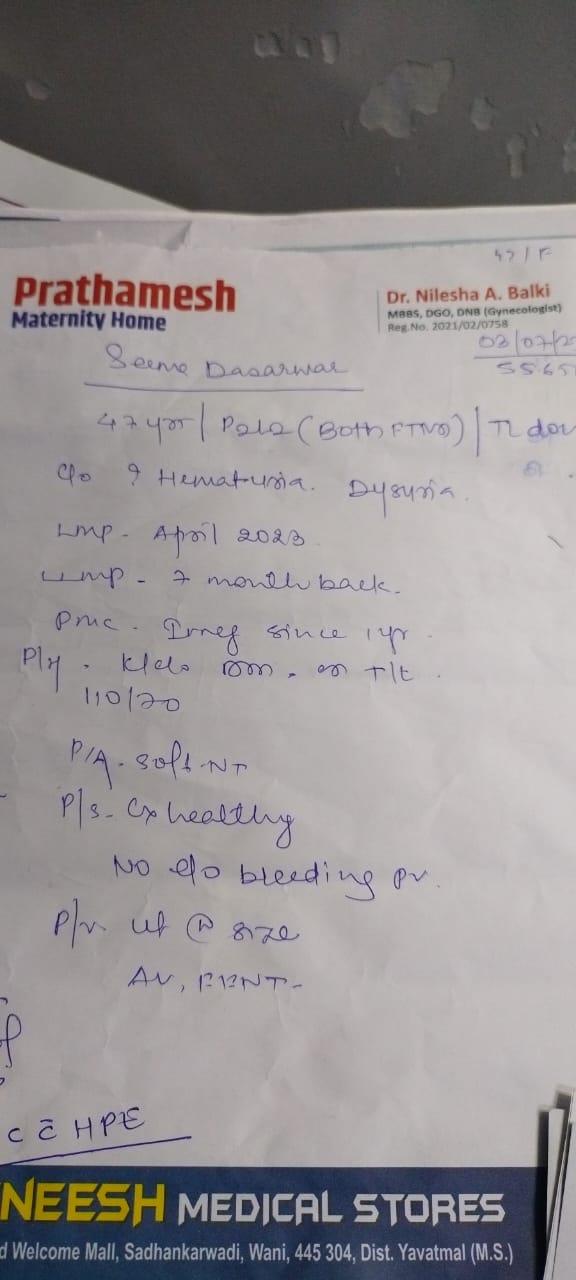 47/F
Prathamesh
Maternity Home
Dr. Nilesha A. Balki
MBBS, DGO, DNB (Gynecologist)
Reg.No. 2021/02/0758
03/07/2
5565
Seema Dasarwar
47 yrs / P2L2 (Both FTND) / TL don
c/o ? Hematuria. Dysuria.
LMP - April 2023
LLMP - 7 month back.
PMC - Irreg since 1yr.
P/H - K/c/o DM. on t/t.
110/70
P/A - soft NT
P/S - Cx healthy
No e/o bleeding pv.
P/V ut (N) size
AV, FFNT
C C̄ HPE
NEESH MEDICAL STORES
d Welcome Mall, Sadhankarwadi, Wani, 445 304, Dist. Yavatmal (M.S.)